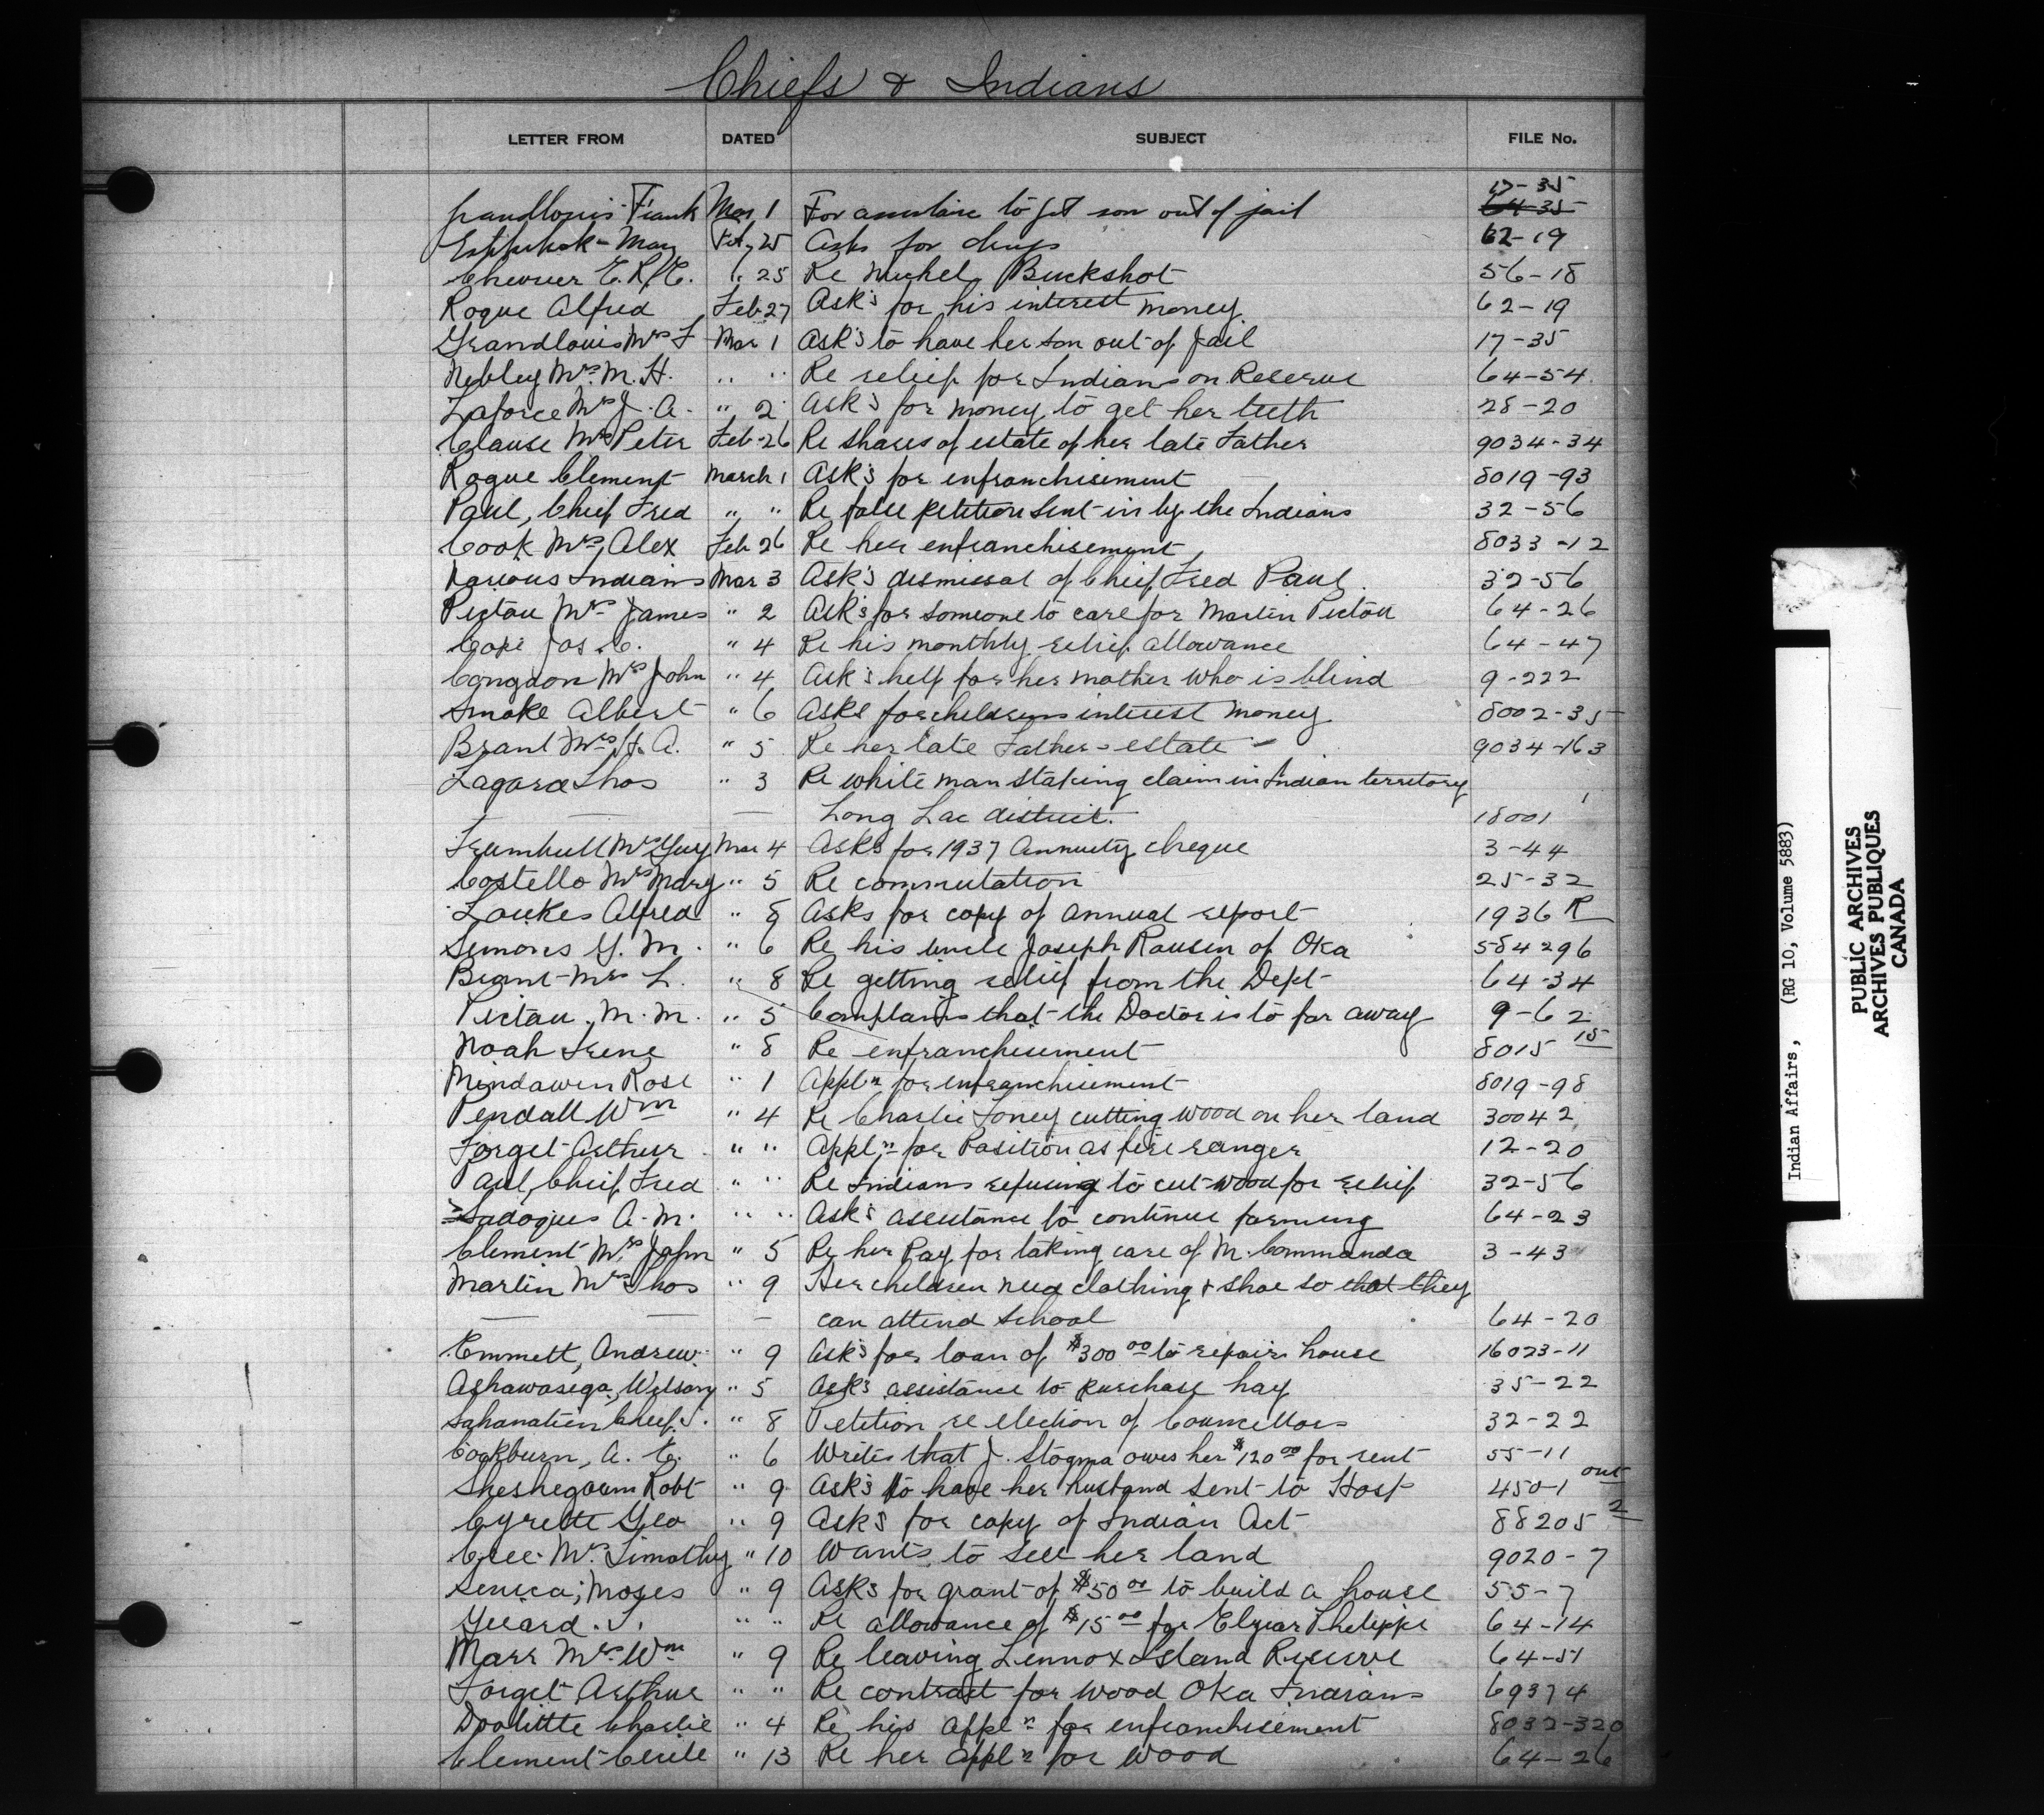 Chiefs & Indians
LETTER FROM DATED SUBJECT FILE No.
17-35
Grandlouis Frank Mar 1 For assistance to get son out of jail 64-35
May Feb 25 Asks for 62-19
" 25 Re Michel Buckshot 56-18
Rogue Alfred Feb 27 Ask's for his interest money 62-19
Grandlouis Mrs F Mar 1 Ask's to have her son out of Jail 17-35
Nebley Mrs. M. H. " " Re relief for Indians on Reserve 64-54
Laforce Mrs J. A. " 2 Ask's for money to get her teeth 28-20
Clause Mrs Peter Feb-26 Re shares of estate of her late Father 9034-34
Rogue Clement March 1 Ask's for enfranchisement 8019-93
Paul, Chief Fred " " Re false petition sent in by the Indians 32-56
Cook Mrs, Alex Feb 26 Re her enfranchisement 8033-12
Various Indians Mar 3 Ask's dismissal of Chief Fred Paul 32-56
Pictou Mrs James " 2 Ask's for someone to care for Martin Pictou 64-26
Cope Jos. C. " 4 Re his monthly relief allowance 64-47
Congdon Mrs John " 4 Ask's help for her mother who is blind 9-222
Smoke Albert " 6 Asks for childrens interest money 8002-35
Brant Mrs H. A. " 5 Re her late Fathers estate 9034-163
Lagarde Thos " 3 Re white man staking claim in Indian territory
— — Long Lac district. 18001
Trumbull Mrs Guy Mar 4 Asks for 1937 Annuity cheque 3-44
Costello Mrs Mary " 5 Re commutation 25-32
Loukes Alfred " 5 Asks for copy of annual report 1936 R
Simons G. M. " 6 Re his uncle Joseph Ransen of Oka 584296
Brant Mrs L. " 8 Re getting relief from the Dept 64-34
Pictou, M. M. " 5 Complains that the Doctor is to far away 9-62
Noah Irene " 8 Re enfranchisement 8015 15
Mindawen Rose " 1 Appl'n for enfranchisement 8019-98
Pendall Wm " 4 Re Charlie Toney cutting wood on her land 30042
Forget Arthur " " Appl'n for Position as fire ranger 12-20
Paul, Chief, Fred " " Re Indians refusing to cut wood for relief 32-56
Sadoques A. M. " " Ask's assistance to continue farming 64-23
Clement Mrs John " 5 Re her Pay for taking care of M. Commanda 3-43
Martin Mrs Thos " 9 Her children need clothing & shoe so that they
— — can attend school 64-20
Emmett, Andrew " 9 Ask's for loan of $300 00 to repair house 16023-11
Ashawasega, Wilson " 5 Ask's assistance to purchase hay 35-22
Sahanatien Chief, J. " 8 Petition re election of Councellors 32-22
Cockburn, A. E. " 6 Writes that J. Stogma owes her $120 00 for rent 55-11
Sheshegoum Robt " 9 Ask's to have her husband sent to Hosp 450-1 ont
Cyrette Geo " 9 Asks for copy of Indian Act 88205 2
Cree Mrs. Timothy " 10 Wants to sell her land 9020-7
Seneca, Moses " 9 Asks for grant of $50 00 to build a house 55-7
Girard. J. " " Re allowance of $15 00 for Elzear Philippe 64-14
Marr Mrs. Wm " 9 Re leaving Lennox Island Reserve 64-51
Forget Arthur " " Re contract for wood Oka Indians 69374
Doolittle Charlie " 4 Re his appl'n for enfranchisement 8032-320
Clement Cecile " 13 Re her appl'n for wood 64-26
Indian Affairs, (RG 10, Volume 5883)
PUBLIC ARCHIVES
ARCHIVES PUBLIQUES
CANADA